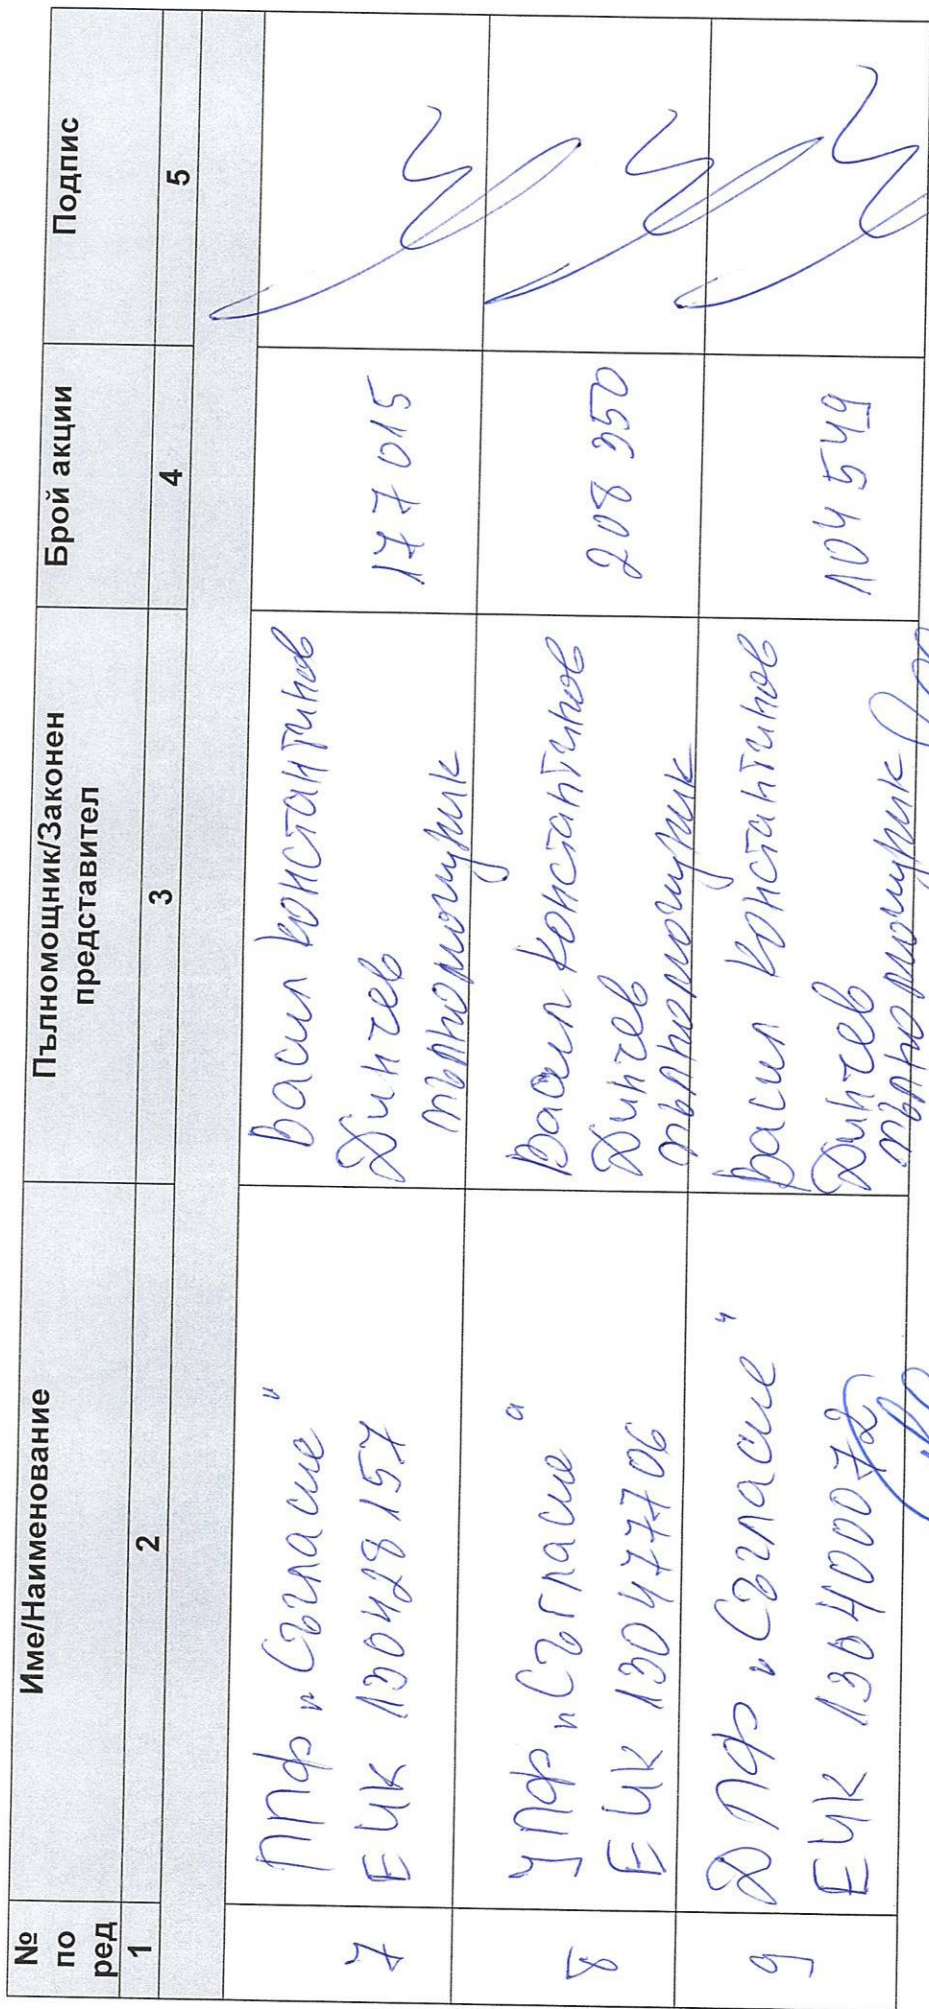 № по ред
Име/Наименование
Пълномощник/Законен представител
Брой акции
Подпис
1
2
3
4
5
7
ППФ „Съгласие"
ЕИК 130428157
Васил Константинов
Динчев
пълномощник
177 015
8
УПФ „Съгласие"
ЕИК 130477706
Васил Константинов
Динчев
пълномощник
208 350
9
ДПФ „Съгласие"
ЕИК 130400072
Васил Константинов
Динчев
пълномощник
104 549